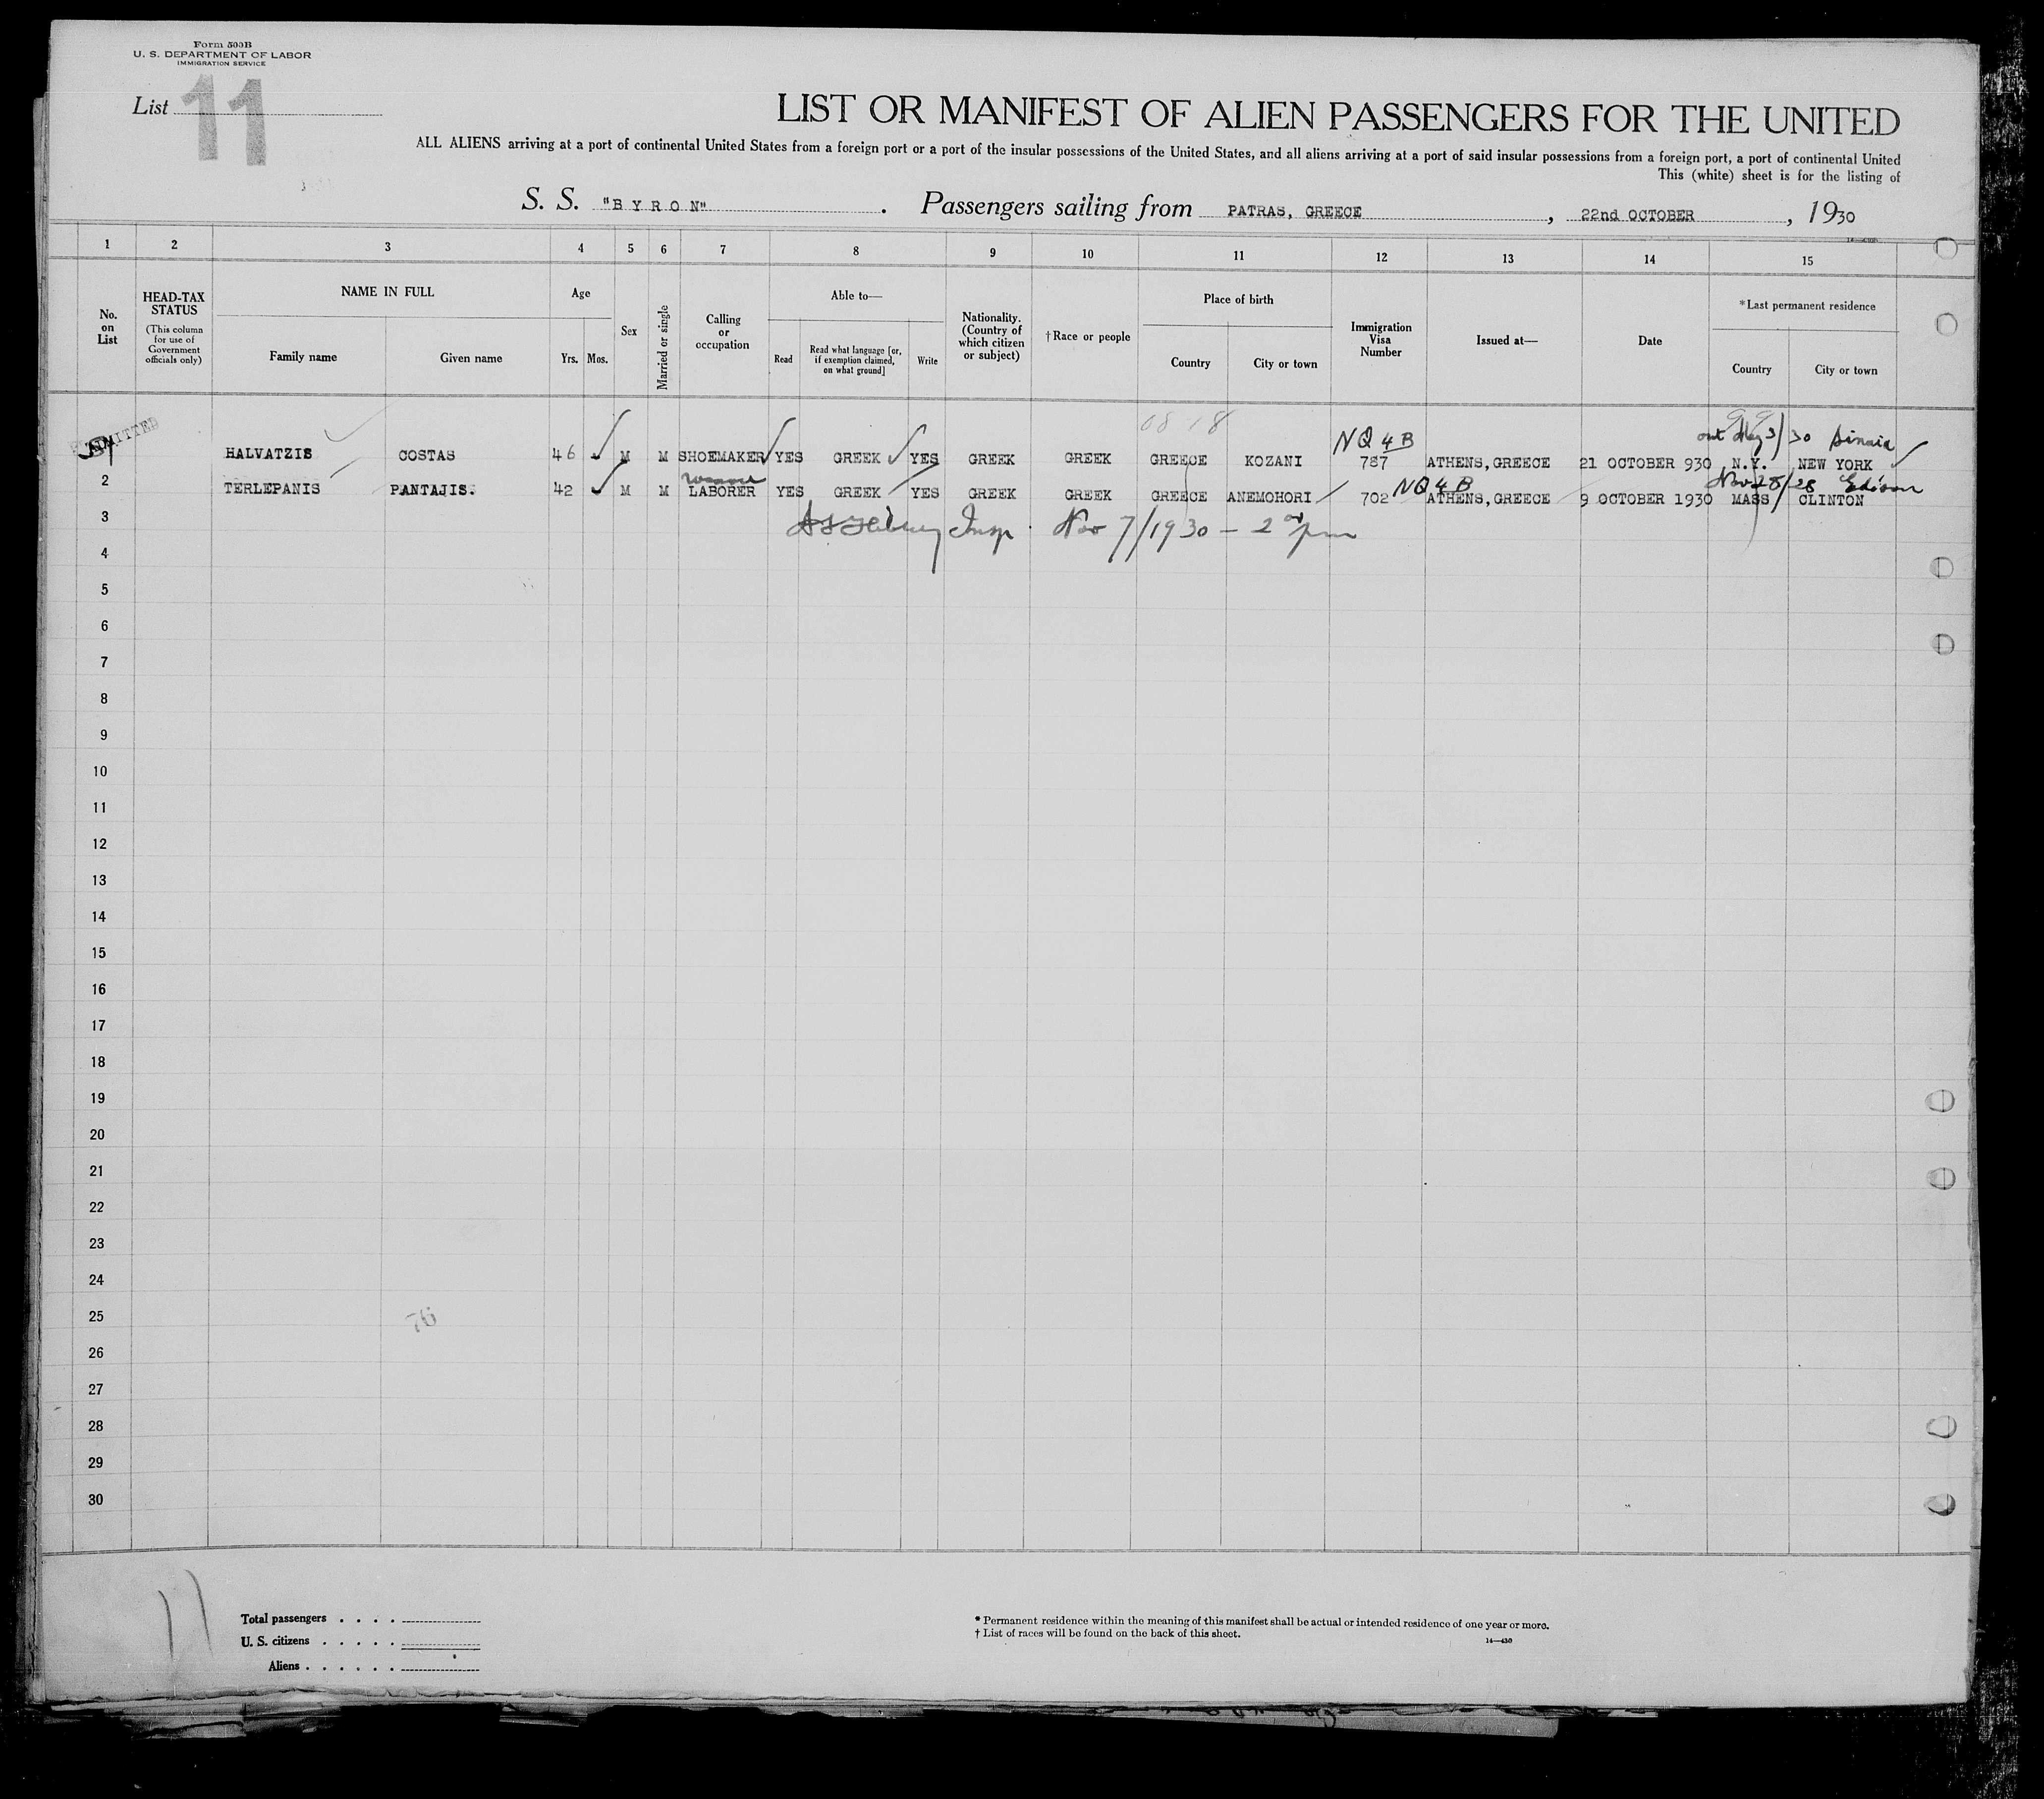 Form 500B
U. S. DEPARTMENT OF LABOR
IMMIGRATION SERVICE
List 11
LIST OR MANIFEST OF ALIEN PASSENGERS FOR THE UNITED
ALL ALIENS arriving at a port of continental United States from a foreign port or a port of the insular possessions of the United States, and all aliens arriving at a port of said insular possessions from a foreign port, a port of continental United
This (white) sheet is for the listing of
S. S. "BYRON". Passengers sailing from PATRAS, GREECE, 22nd OCTOBER, 1930
1 2 3 4 5 6 7 8 9 10 11 12 13 14 15
No. on List
HEAD-TAX STATUS
(This column for use of Government officials only)
NAME IN FULL
Family name Given name
Age
Yrs. Mos.
Sex
Married or single
Calling or occupation
Able to—
Read
Read what language [or, if exemption claimed, on what ground]
Write
Nationality. (Country of which citizen or subject)
†Race or people
Place of birth
Country City or town
Immigration Visa Number
Issued at—
Date
*Last permanent residence
Country City or town
ADMITTED
08 18
NQ 4 B
out 30 Sinaia
1 HALVATZIS COSTAS 46 M M SHOEMAKER YES GREEK YES GREEK GREEK GREECE KOZANI 787 ATHENS,GREECE 21 OCTOBER 930 N.Y. NEW YORK
NQ 4 B
Nov 28/28 Edison
2 TERLEPANIS PANTAJIS. 42 M M LABORER YES GREEK YES GREEK GREEK GREECE ANEMOHORI 702 ATHENS,GREECE 9 OCTOBER 1930 MASS CLINTON
3 Insp. Nov 7/1930 - 2 pm
4
5
6
7
8
9
10
11
12
13
14
15
16
17
18
19
20
21
22
23
24
25
76
26
27
28
29
30
11
Total passengers . . . .
U. S. citizens . . . . .
Aliens . . . . . .
* Permanent residence within the meaning of this manifest shall be actual or intended residence of one year or more.
† List of races will be found on the back of this sheet.
14—430